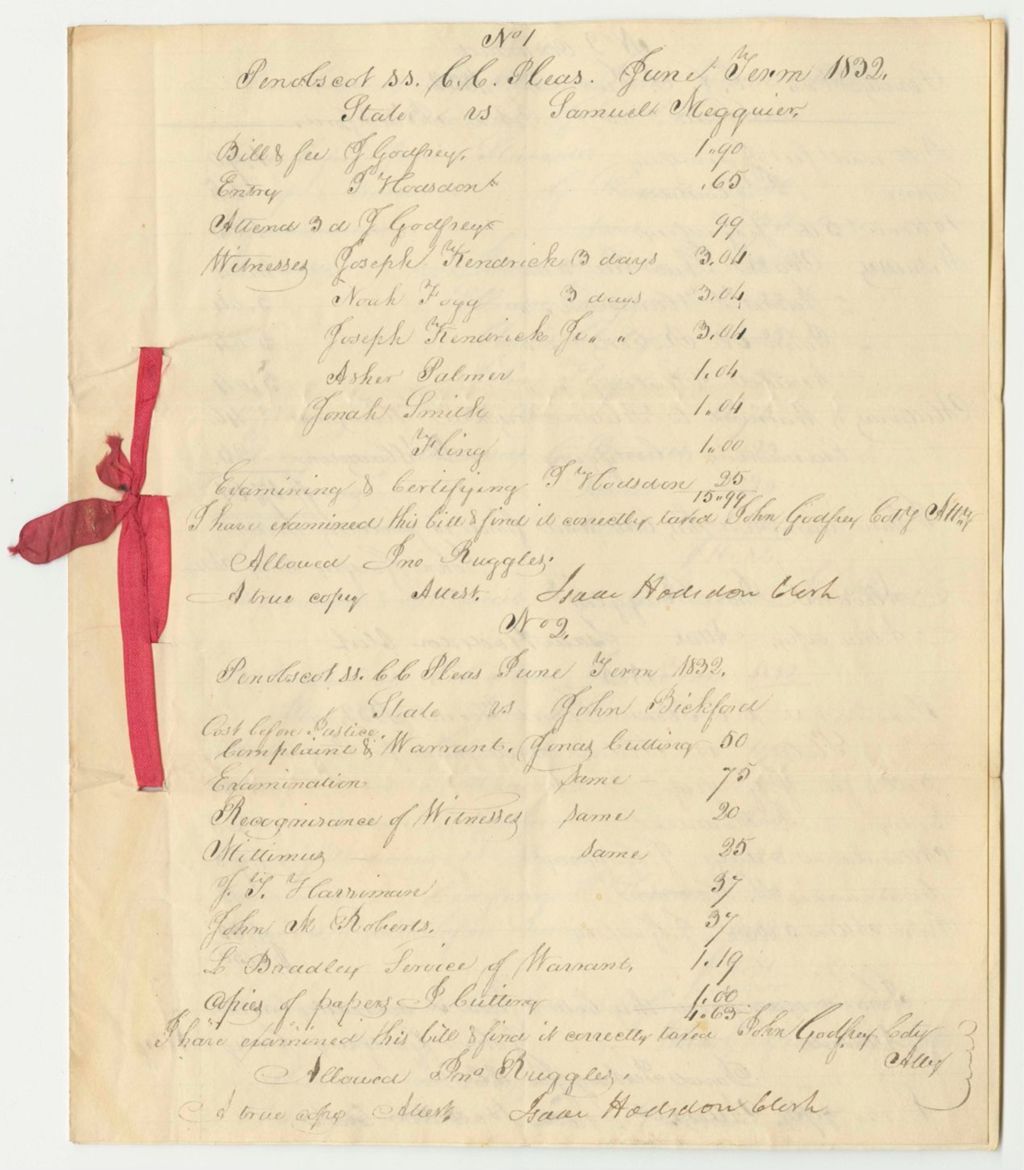 No 1
Penobscot ss. C. C. Pleas. June Term 1832.
State vs Samuel Megquier.
Bill & fee J Godfrey. 1.90
Entry I Hodsdon .65
Attend 3 d J Godfrey 99
Witnesses Joseph Kendrick 3 days 3.04
Noah Fogg 3 days 3.04
Joseph Kendrick Jr " " 3.04
Asher Palmer 1.04
Jonah Smith 1.04
Fling 1.00
Examining & Certifying I Hodsdon 25
15.99
I have examined this bill & find it correctly taxed John Godfrey Coty Atty
Allowed Jno Ruggles.
A true copy Attest. Isaac Hodsdon Clerk
No 2.
Penobscot ss. C C Pleas June Term 1832.
State vs John Bickford
Cost before Justice.
Complaint & Warrant. Jonas Cutting 50
Examination same 75
Recognizance of Witnesses same 20
Mittimus same 25
J. T. Harriman 37
John M Roberts. 37
L Bradley Service of Warrant. 1.19
Copies of papers J Cutting 1.00
4.63
I have examined this bill & find it correctly taxed John Godfrey Coty
Atty
Allowed Jno Ruggles.
A true copy Attest. Isaac Hodsdon Clerk